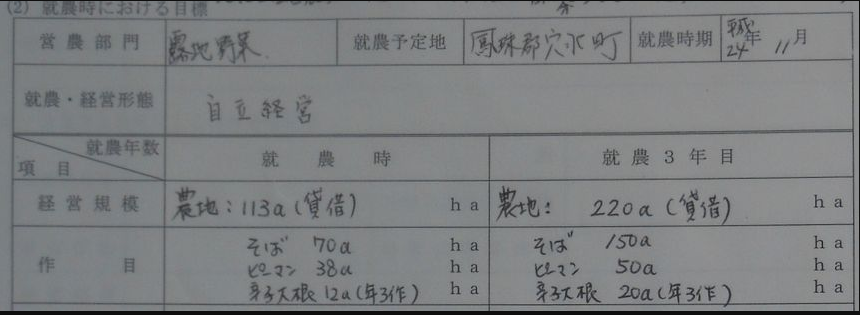 (2) 就農時における目標
営農部門 露地野菜 就農予定地 鳳珠郡穴水町 就農時期 平成24年 11月
就農・経営形態 自立経営
就農年数
項目 就農時 就農3年目
経営規模 農地：113a（貸借） ha 農地： 220a（貸借） ha
そば 70a ha そば 150a ha
作目 ピーマン 38a ha ピーマン 50a ha
辛子大根 12a（年3作） ha 辛子大根 20a（年3作） ha